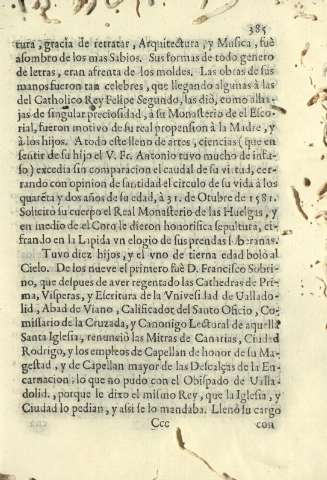 385
tura, gracia de retratar, Arquitectura, y Musica, fuè
asombro de los mas Sabios. Sus formas de todo genero
de letras, eran afrenta de los moldes. Las obras de sus
manos fueron tan celebres, que llegando algunas à las
del Catholico Rey Felipe Segundo, las diò, como alha-
jas de singular preciosidad, à su Monasterio de el Esco-
rial, fueron motivo de su real propension à la Madre, y
à los hijos. A todo este lleno de artes, ciencias (que en
sentir de su hijo el V. Fr. Antonio tuvo mucho de infu-
so) excedia sin comparacion el caudal de su virtud, cer-
rando con opinion de santidad el circulo de su vida à los
quarēta y dos años de su edad, à 31. de Otubre de 1581.
Solicitò su cuerpo el Real Monasterio de las Huelgas, y
en medio de el Coro le dieron honorifica sepultura, ci-
frando en la Lapida vn elogio de sus prendas soberanas.
Tuvo diez hijos, y el vno de tierna edad bolò al
Cielo. De los nueve el primero fuè D. Francisco Sobri-
no, que despues de aver regentado las Cathedras de Pri-
ma, Visperas, y Escritura de la Vniversidad de Vallado-
lid, Abad de Vivano, Calificador del Santo Oficio, Co-
missario de la Cruzada, y Canonigo Lectoral de aquella
Santa Iglesia, renunciò las Mitras de Canarias, Ciudad
Rodrigo, y los empleos de Capellan de honor de su Ma-
gestad, y de Capellan mayor de las Descalças de la En-
carnacion: lo que no pudo con el Obispado de Valla-
dolid, porque le dixo el mismo Rey, que la Iglesia, y
Ciudad lo pedian, y assi se lo mandaba. Llenò su cargo
Ccc con